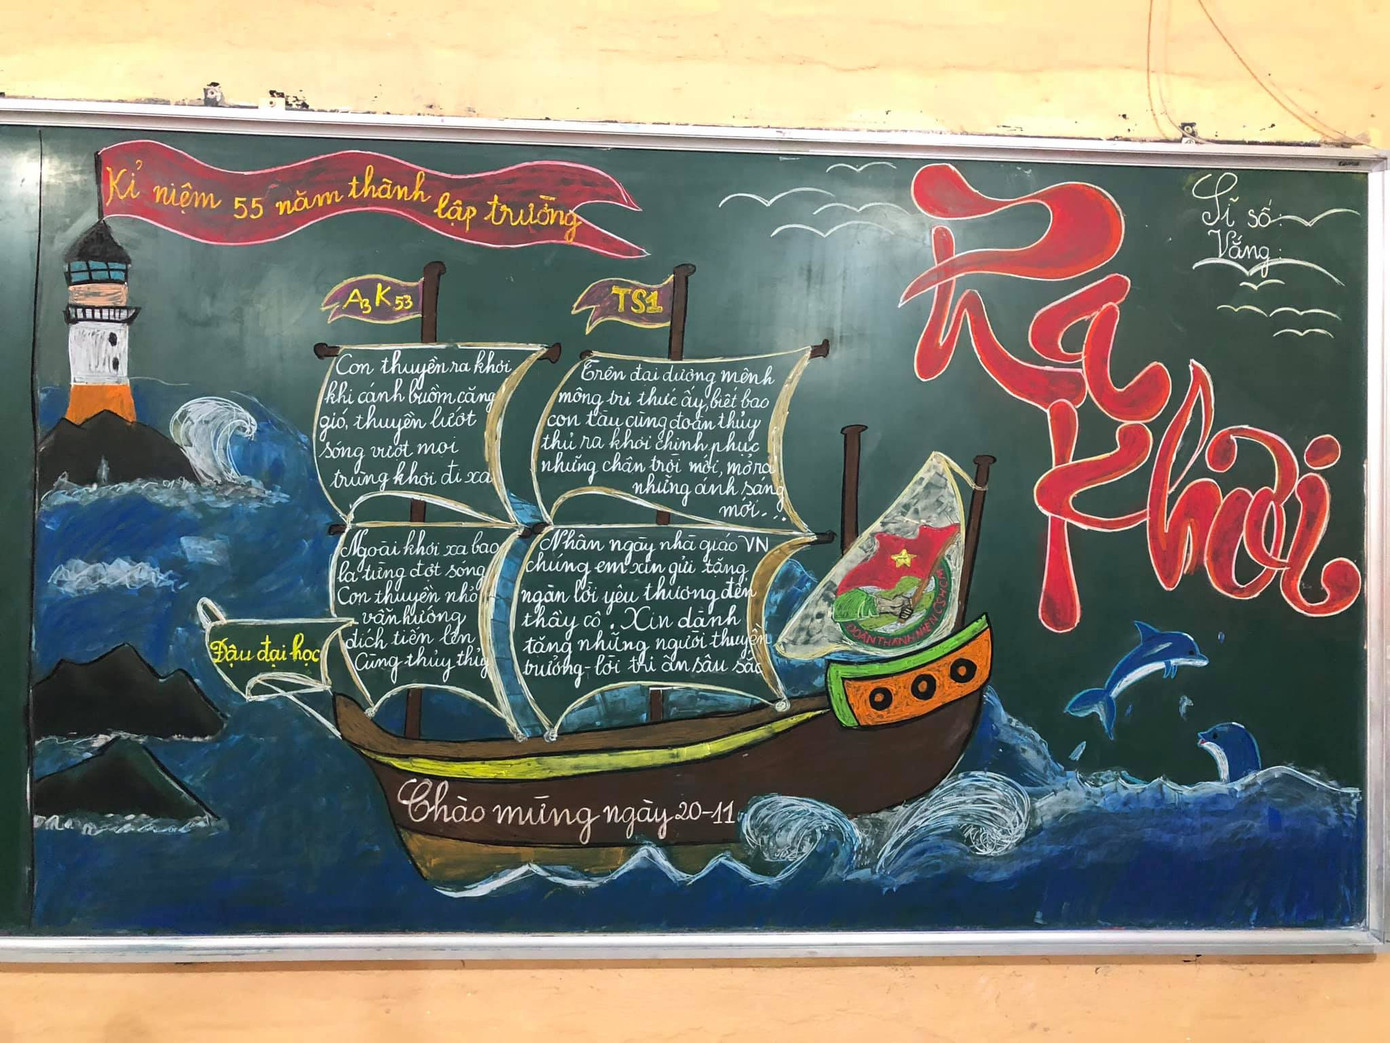 Kỉ niệm 55 năm thành lập trường
A3 K53
TS1
Ra Khơi
Sĩ số:
Vắng:
Con thuyền ra khơi
khi cánh buồm căng
gió, thuyền lướt
sóng vượt mọi
trùng khơi đi xa
Trên đại dương mênh
mông tri thức ấy, biết bao
con tàu cùng đoàn thủy
thủ ra khơi chinh phục
những chân trời mới, mở ra
những ánh sáng
mới...
Ngoài khơi xa bao
la từng đợt sóng
Con thuyền nhỏ
vẫn hướng
đích tiến lên
Cùng thủy thủ
Nhân ngày nhà giáo VN
chúng em xin gửi tặng
ngàn lời yêu thương đến
thầy cô. Xin dành
tặng những người thuyền
trưởng lời tri ân sâu sắc
Đậu đại học
ĐOÀN THANH NIÊN CS HCM
Chào mừng ngày 20-11